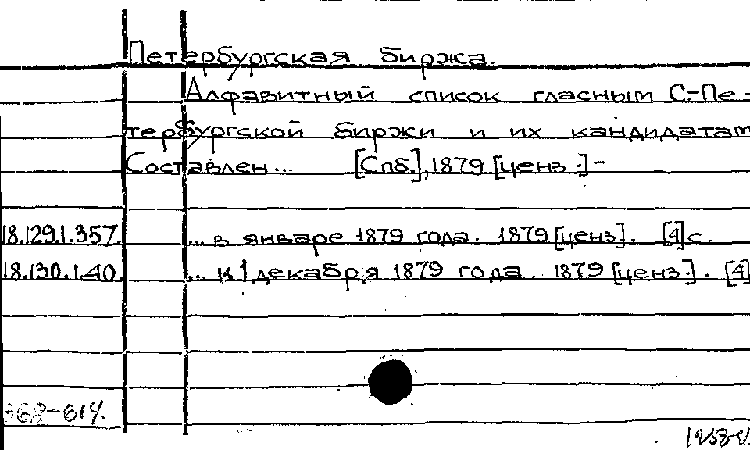 Петербургская биржа.
Алфавитный список гласным С.-Пе-
тербургской биржи и их кандидатам
Составлен... [Спб.], 1879 [ценз.] -
18.129.1.357. ... в январе 1879 года. 1879 [ценз]. [4] с.
18.130.1.40. ... к 1 декабря 1879 года. 1879 [ценз.]. [4]